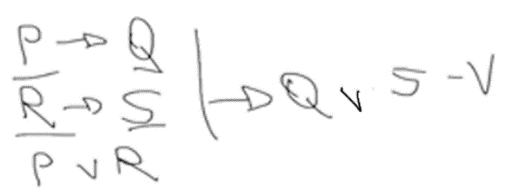 P → Q
R → S
P ∨ R
| → Q ∨ S - V